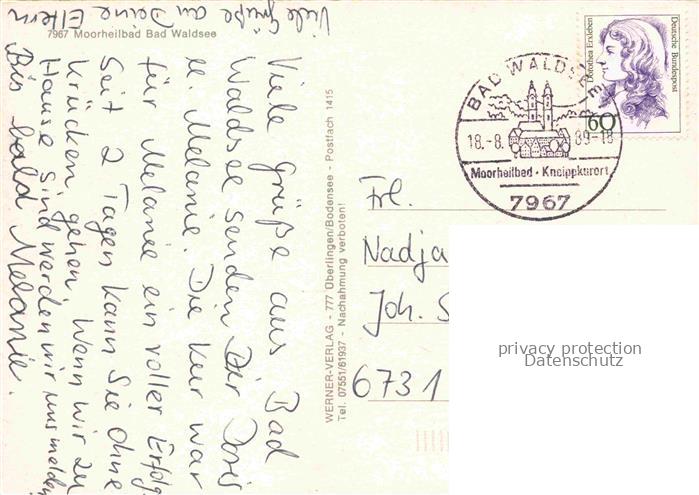 7967 Moorheilbad Bad Waldsee
Viele Grüße aus Bad
Waldsee senden Dir Doris
u. Melanie. Die Kur war
für Melanie ein voller Erfolg.
Seit 2 Tagen kann sie ohne
Krücken gehen. Wenn wir zu
Hause sind werden wir uns melden
Bis bald Melanie.
Viele Grüße an Deine Eltern
WERNER-VERLAG - 777 Überlingen/Bodensee - Postfach 1415
Tel. 07551/61937 - Nachahmung verboten!
Deutsche Bundespost
Dorothea Erxleben
60
BAD WALDSEE
18.-8. 89-18
Moorheilbad · Kneippkurort
7967
Frl.
Nadja
Joh. S
6731
privacy protection
Datenschutz